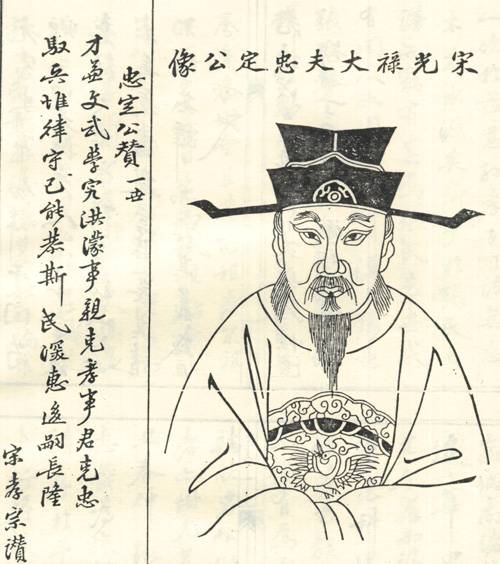 宋光祿大夫忠定公像
忠定公贊 一世
才兼文武學究洪濛事親克孝事君克忠
馭兵惟律守己能恭斯民深惠後嗣長隆
宋孝宗讚